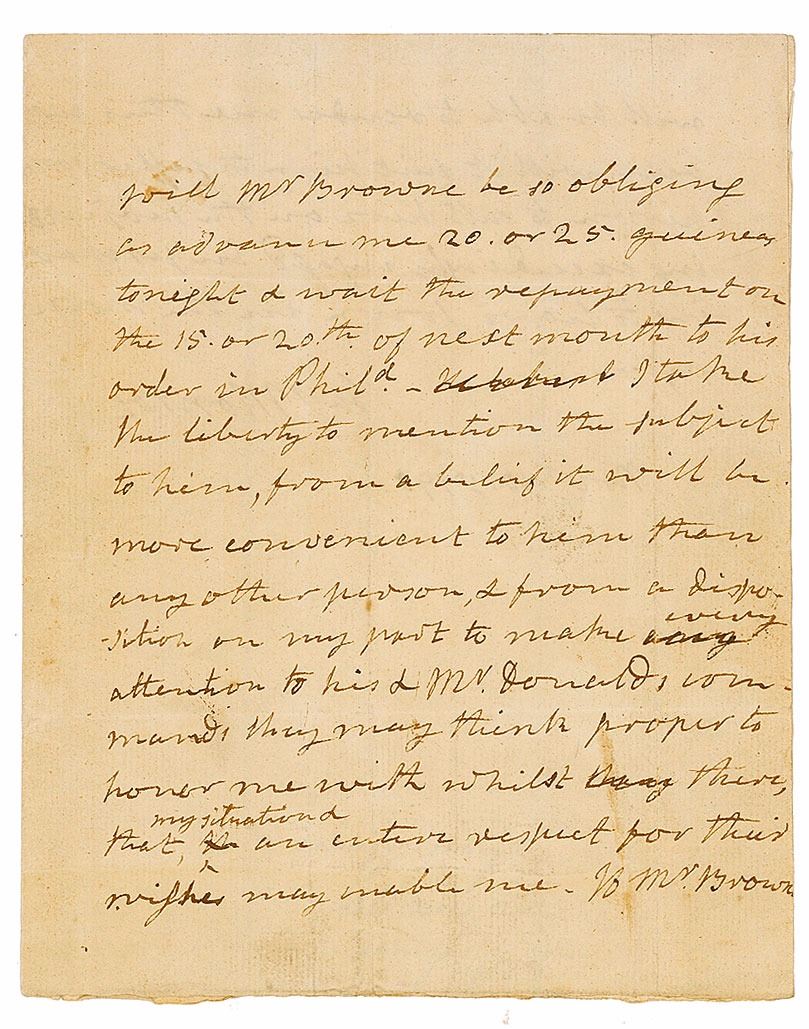 will Mr Browne be so obliging
as advance me 20. or 25. guineas
tonight & wait the repayment on
the 15. or 20.th of next month to his
order in Phild. - I take
the liberty to mention the subject
to him, from a belief it will be
more convenient to him than
any other person, & from a dispo-
-sition on my part to make any every
attention to his & Mr. Donalds com-
mands they may think proper to
honor me with whilst they there,
my situation &
that, an entire respect for their
wishes may enable me. If Mr. Brown